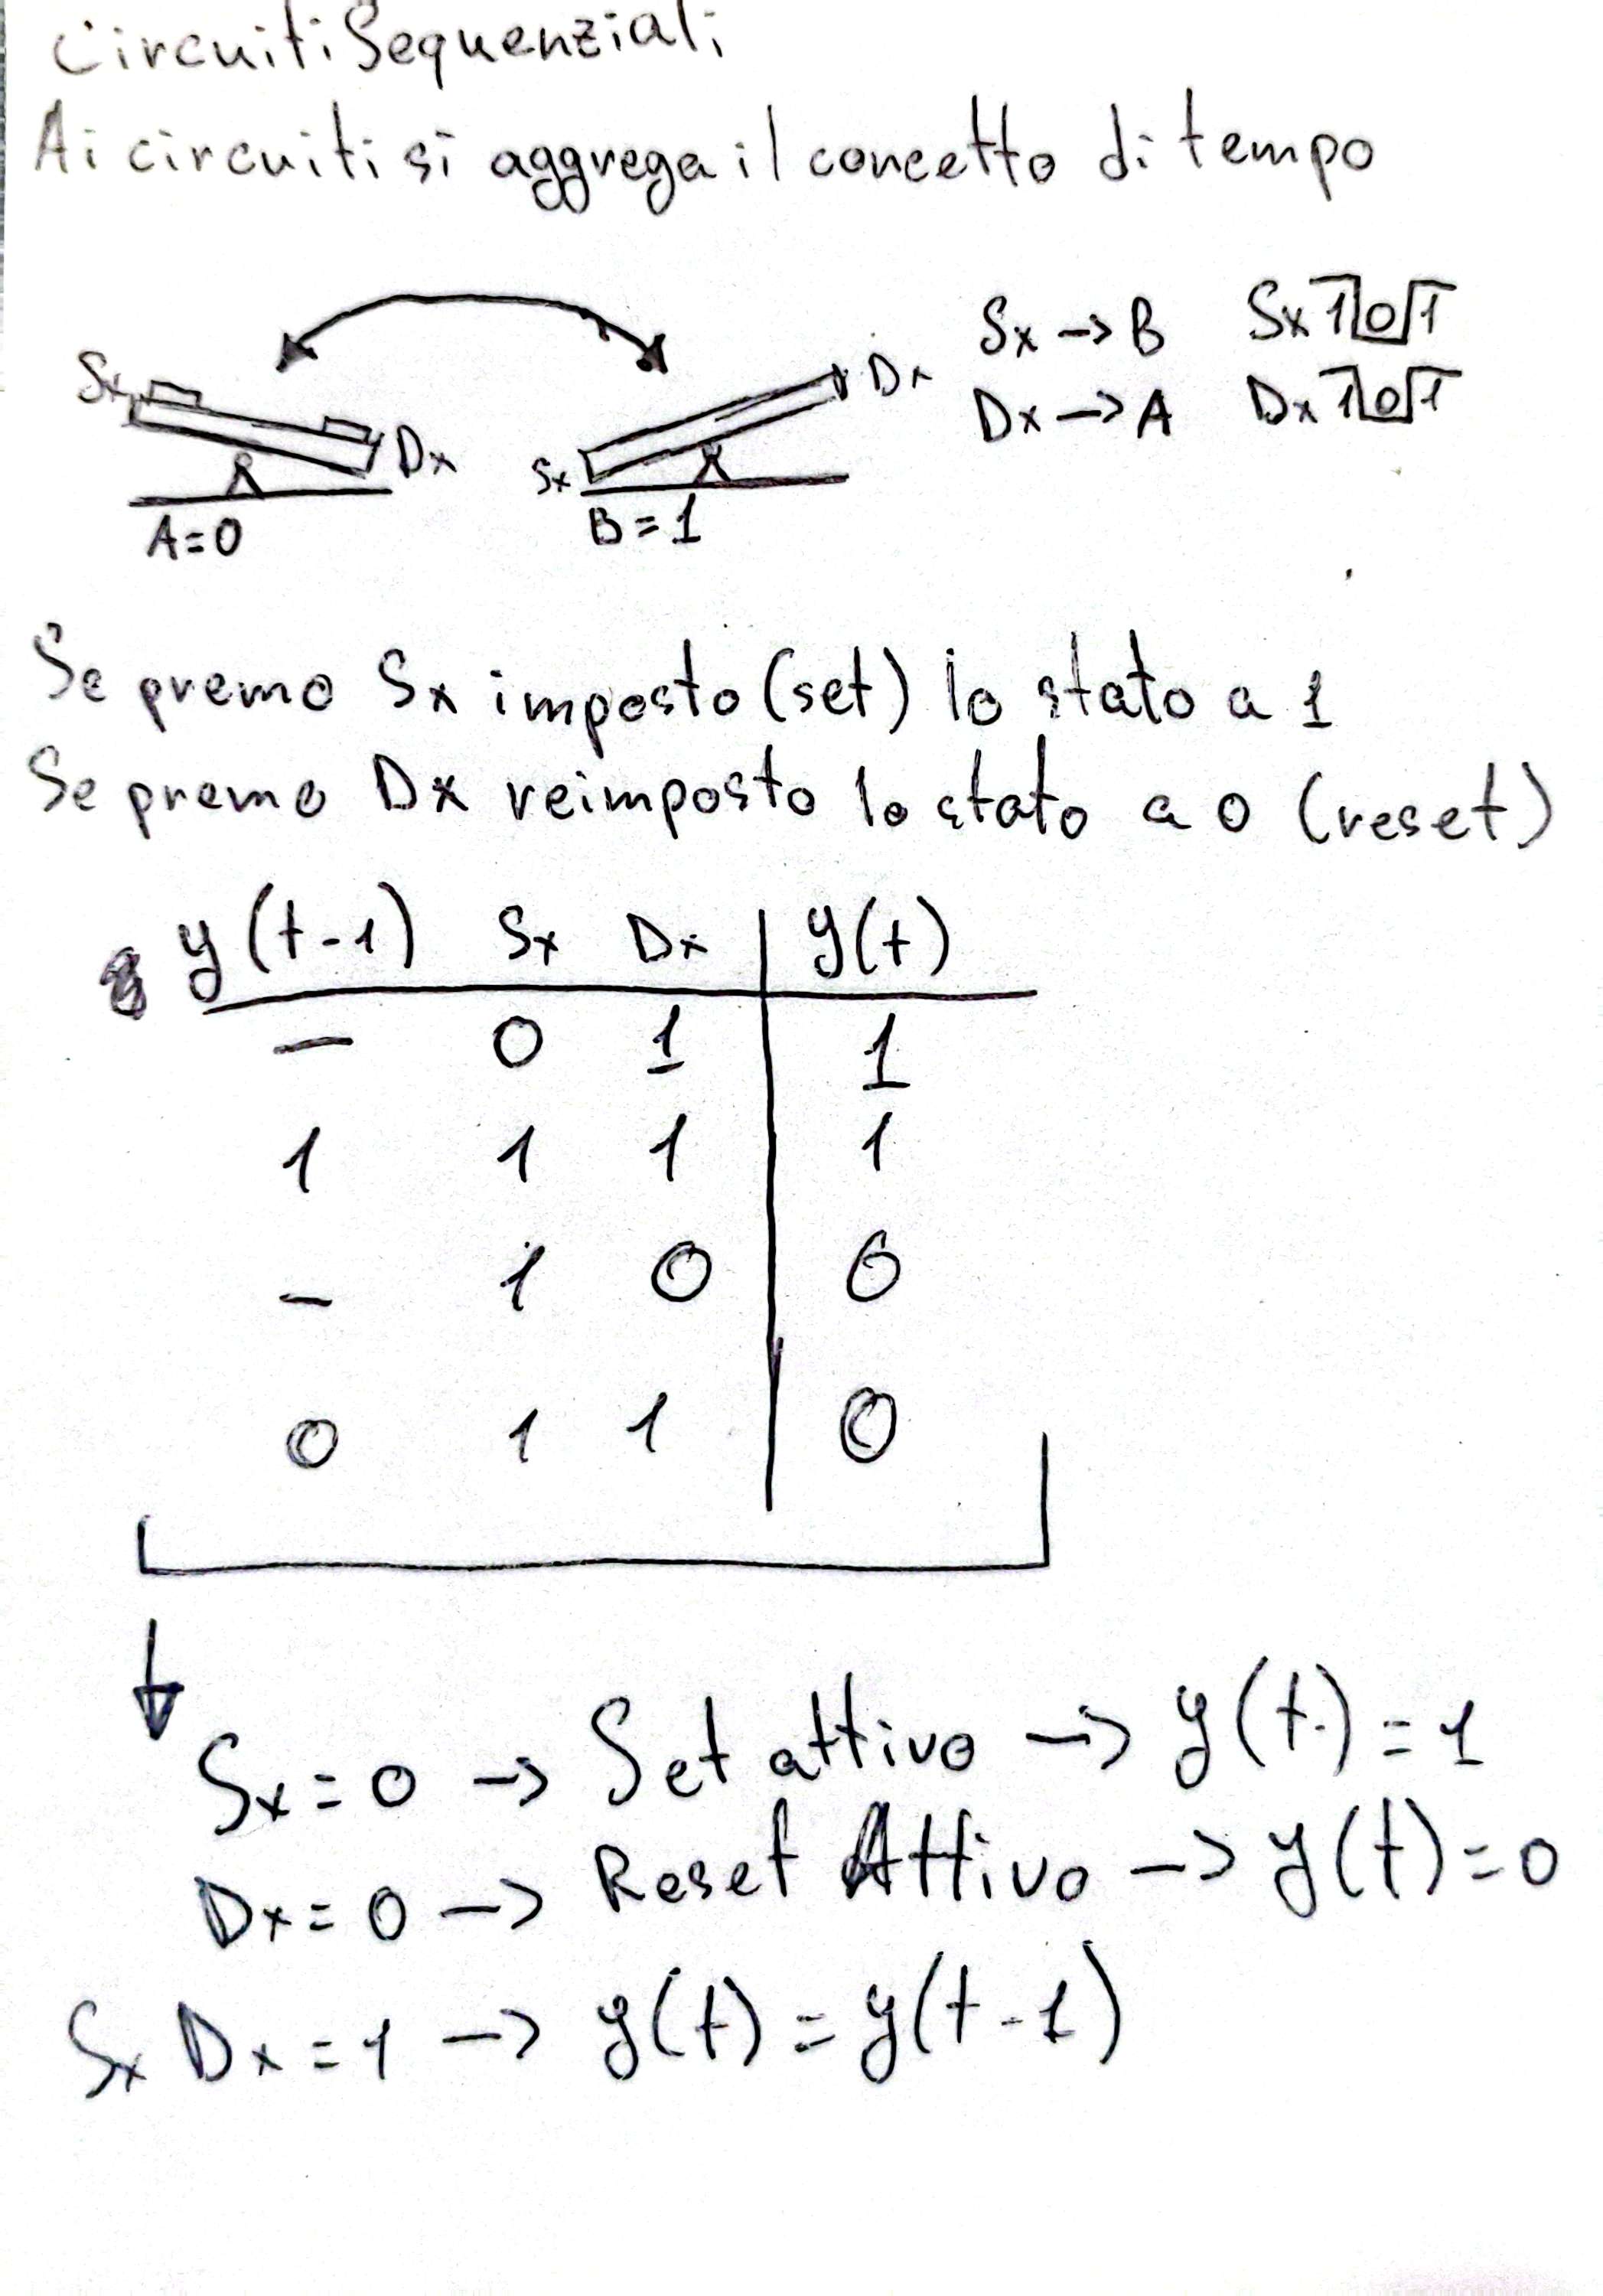 Circuiti Sequenziali
Ai circuiti si aggrega il concetto di tempo
Sx → B Sx 1 0 1
Dx → A Dx 1 0 1
Sx Dx
A=0
Sx Dx
B=1
Se premo Sx imposto (set) lo stato a 1
Se premo Dx reimposto lo stato a 0 (reset)
y(t-1) Sx Dx | y(t)
— 0 1 | 1
1 1 1 | 1
- 1 0 | 0
0 1 1 | 0
Sx=0 → Set attivo → y(t)=1
Dx=0 → Reset Attivo → y(t)=0
Sx Dx=1 → y(t)=y(t-1)